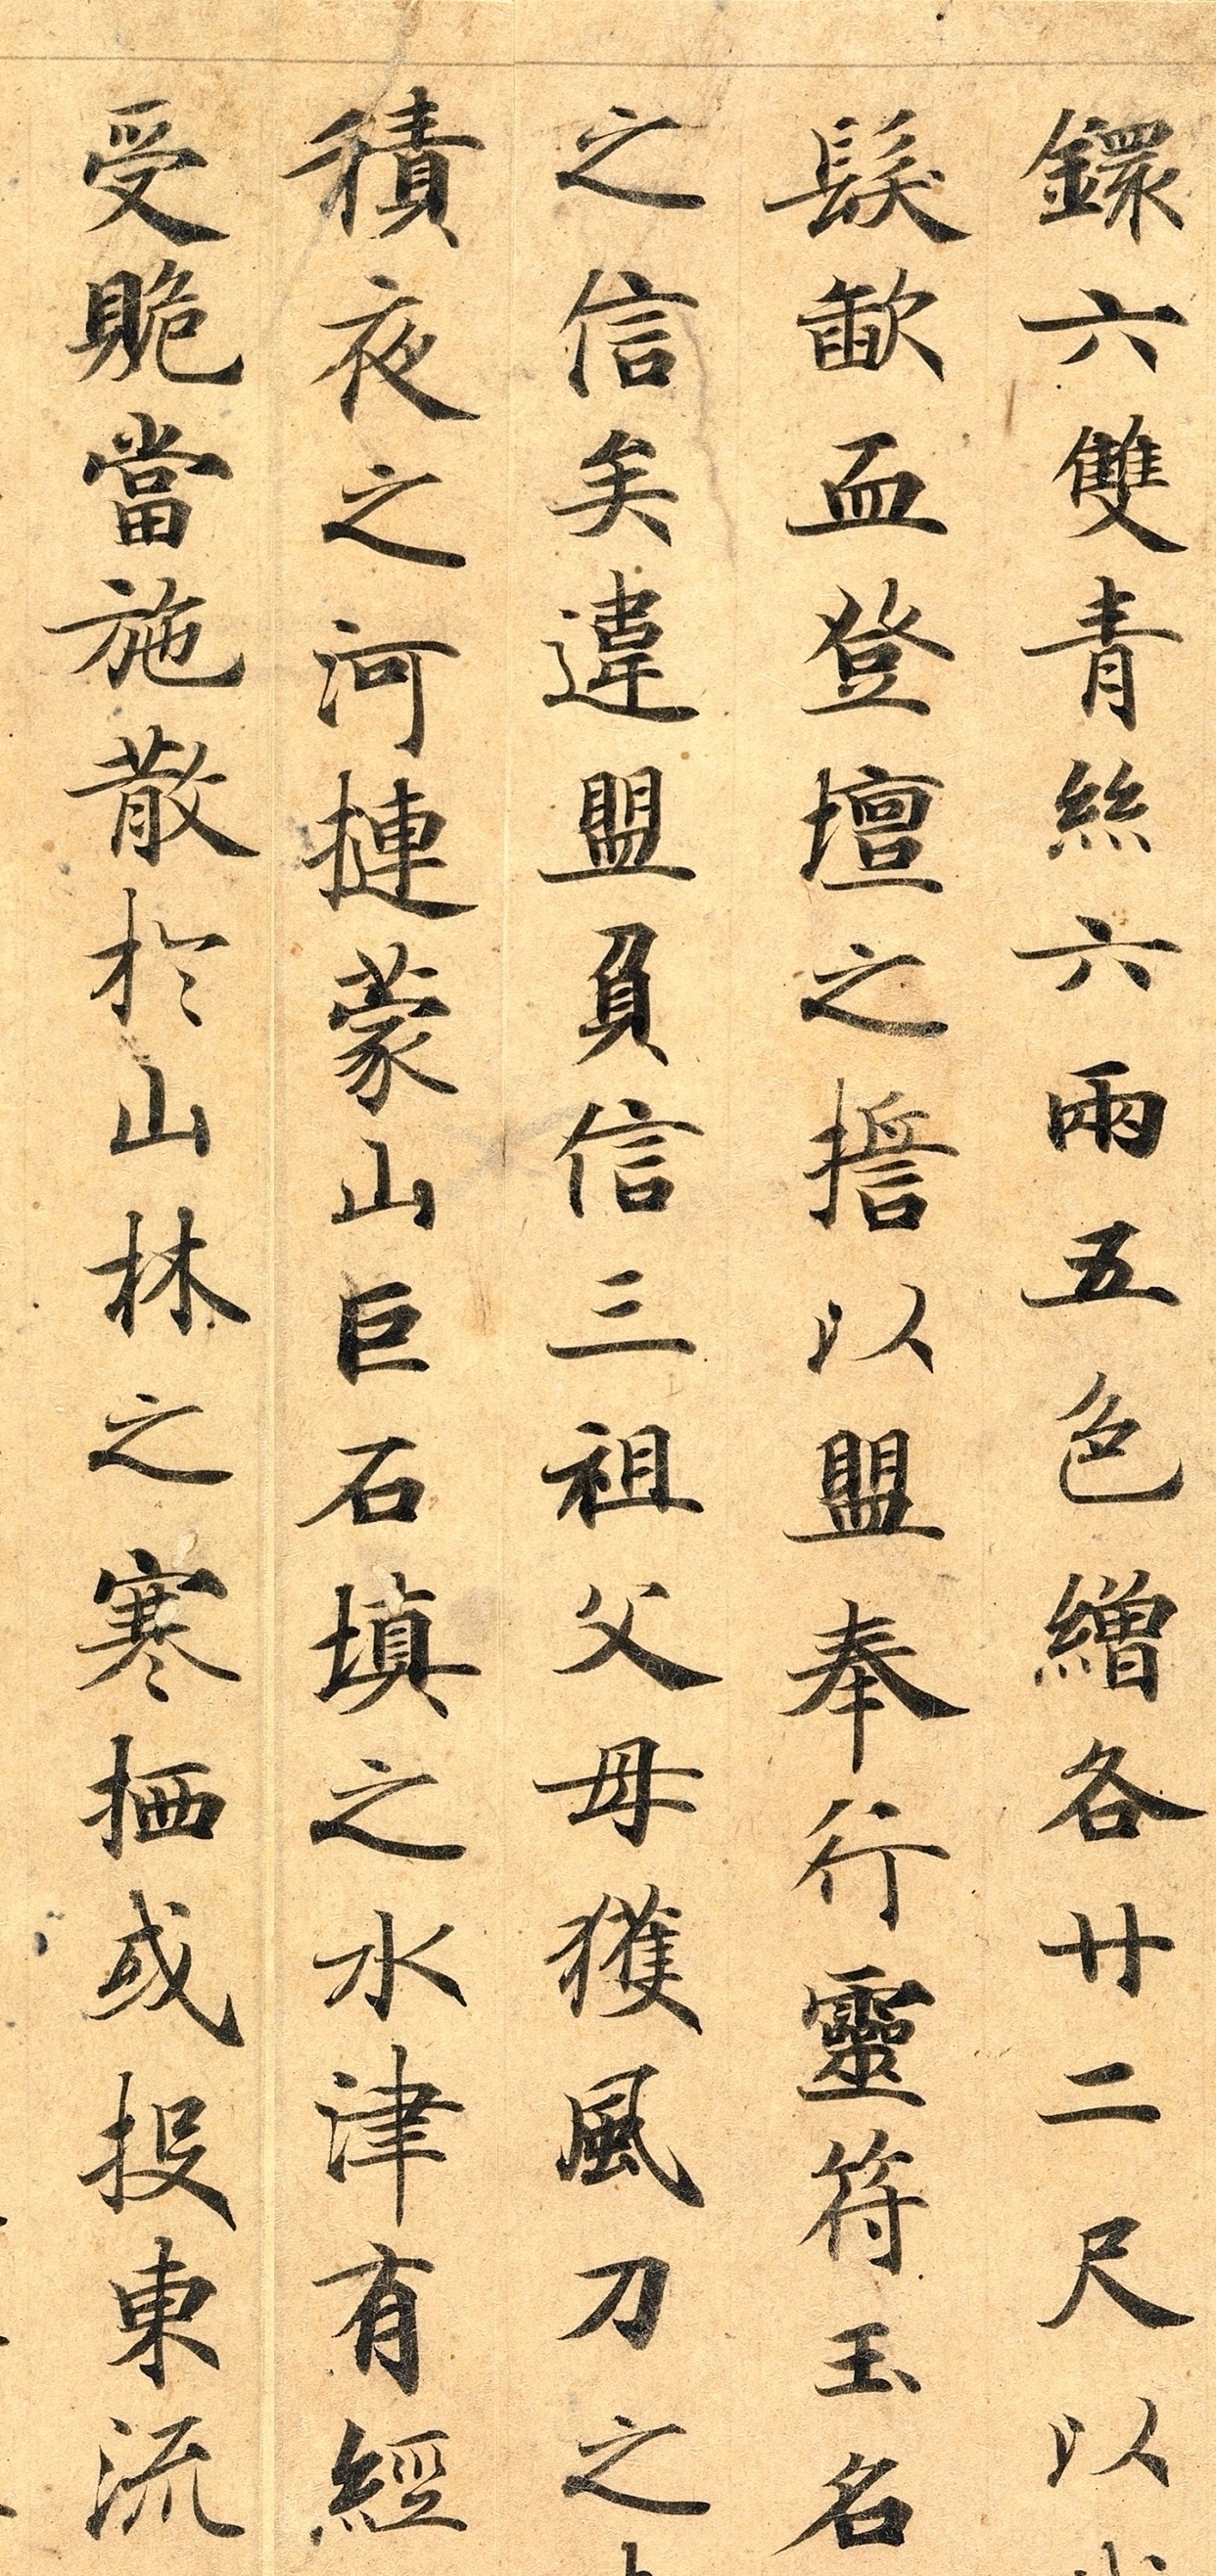 鐶六雙青絲六兩五色繒各廿二尺以
髮歃血登壇之誓以盟奉行靈符玉名
之信矣違盟負信三祖父母獲風刀之
積夜之河摙蒙山巨石填之水津有經
受賍當施散於山林之寒栖或投東流